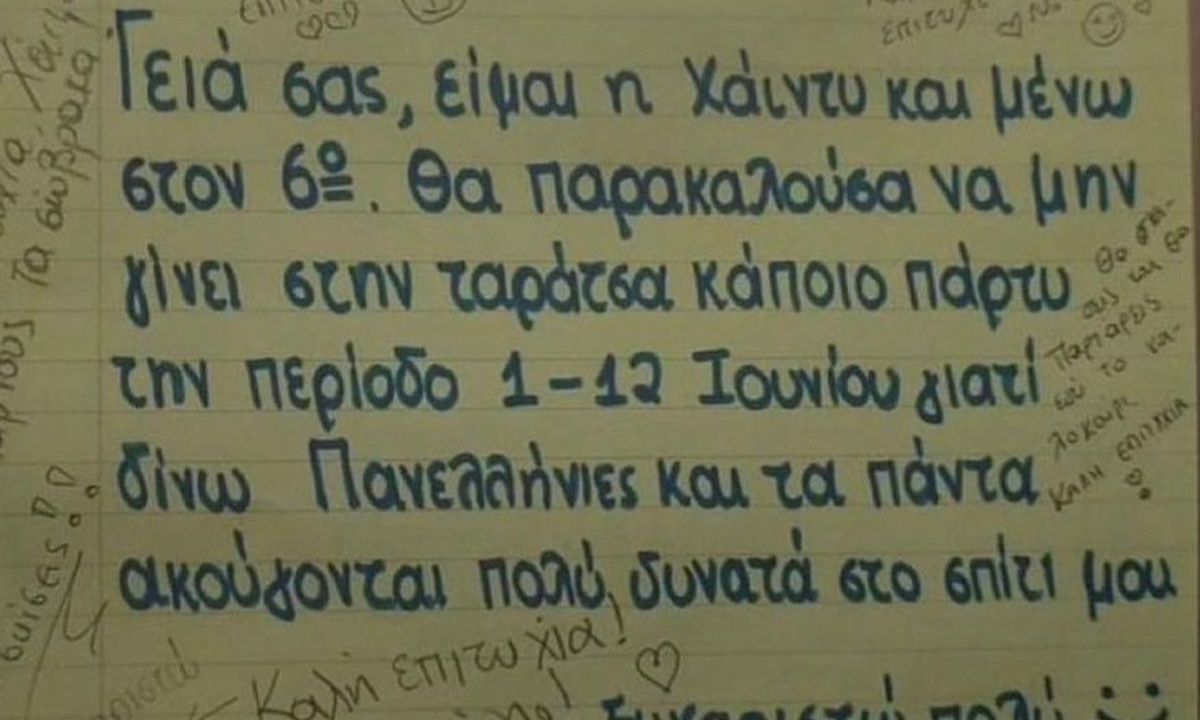 Γειά σας, είμαι η Χάιντυ και μένω
στον 6º. Θα παρακαλούσα να μην
γίνει στην ταράτσα κάποιο πάρτυ
την περίοδο 1-12 Ιουνίου γιατί
δίνω Πανελλήνιες και τα πάντα
ακούγονται πολύ δυνατά στο σπίτι μου
Ευχαριστώ πολύ :)
Καλή επιτυχία!
Θα σπά-
σεις και θα
παρτάρεις
εσύ το κα-
λοκαίρι
Καλή επιτυχία
σκίσεις!!
Τα σώβρακα